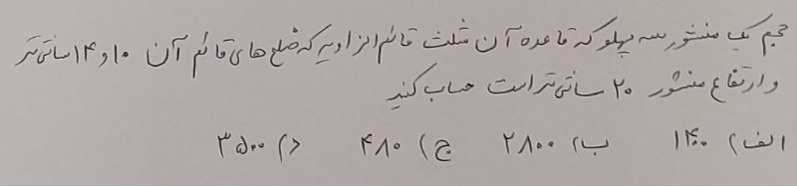 حجم یک منشور سه پهلو که قاعده آن مثلث قائم الزاویه که ضلع های قائم آن ۱۰ و ۱۴ سانتی متر
و ارتفاع منشور ۲۰ سانتی متر است حساب کنید
الف) ۱۴۰۰ ب) ۲۸۰۰ ج) ۴۸۰ د) ۳۵۰۰